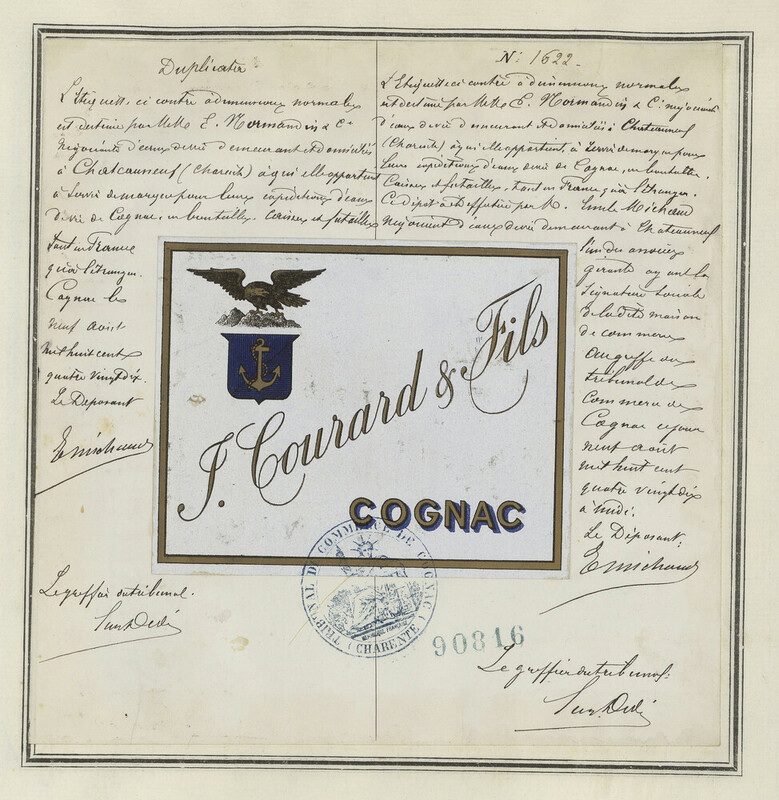 Duplicata
L'étiquette ci contre à dimensions normales
est destinée par Mrs E. Normandin & Cie
Négociants d'eaux de vie demeurant et domiciliés
à Chateauneuf (Charente) à qui elle appartient
à servir de marque pour leurs expéditions d'eaux
de vie de Cognac, en bouteilles, caisses et futailles
tant en France
qu'à l'étranger.
Cognac le
neuf août
mil huit cent
quatre vingt dix.
Le Déposant
E Michaud
Le greffier du tribunal.
No. 1622
L'Etiquette ci contre à dimensions normales
est destinée par Mrs E. Normandin & Cie négociants
d'eaux de vie demeurant et domiciliés à Chateauneuf
(Charente) à qui elle appartient à servir de marque pour
leurs expéditions d'eaux de vie de Cognac, en bouteilles,
Caisses et futailles, tant en France qu'à l'étranger.
Ce dépôt a été effectué par M. Emile Michaud
négociant d'eaux de vie demeurant à Chateauneuf
l'un des associés
gérants ayant la
signature sociale
de la dite maison
de commerce
au greffe du
tribunal de
Commerce de
Cognac ce jour
neuf août
mil huit cent
quatre vingt dix
à midi.
Le Déposant:
E Michaud
Le greffier du tribunal:
J. Courard & Fils
COGNAC
TRIBUNAL DE COMMERCE DE COGNAC
(CHARENTE)
90816